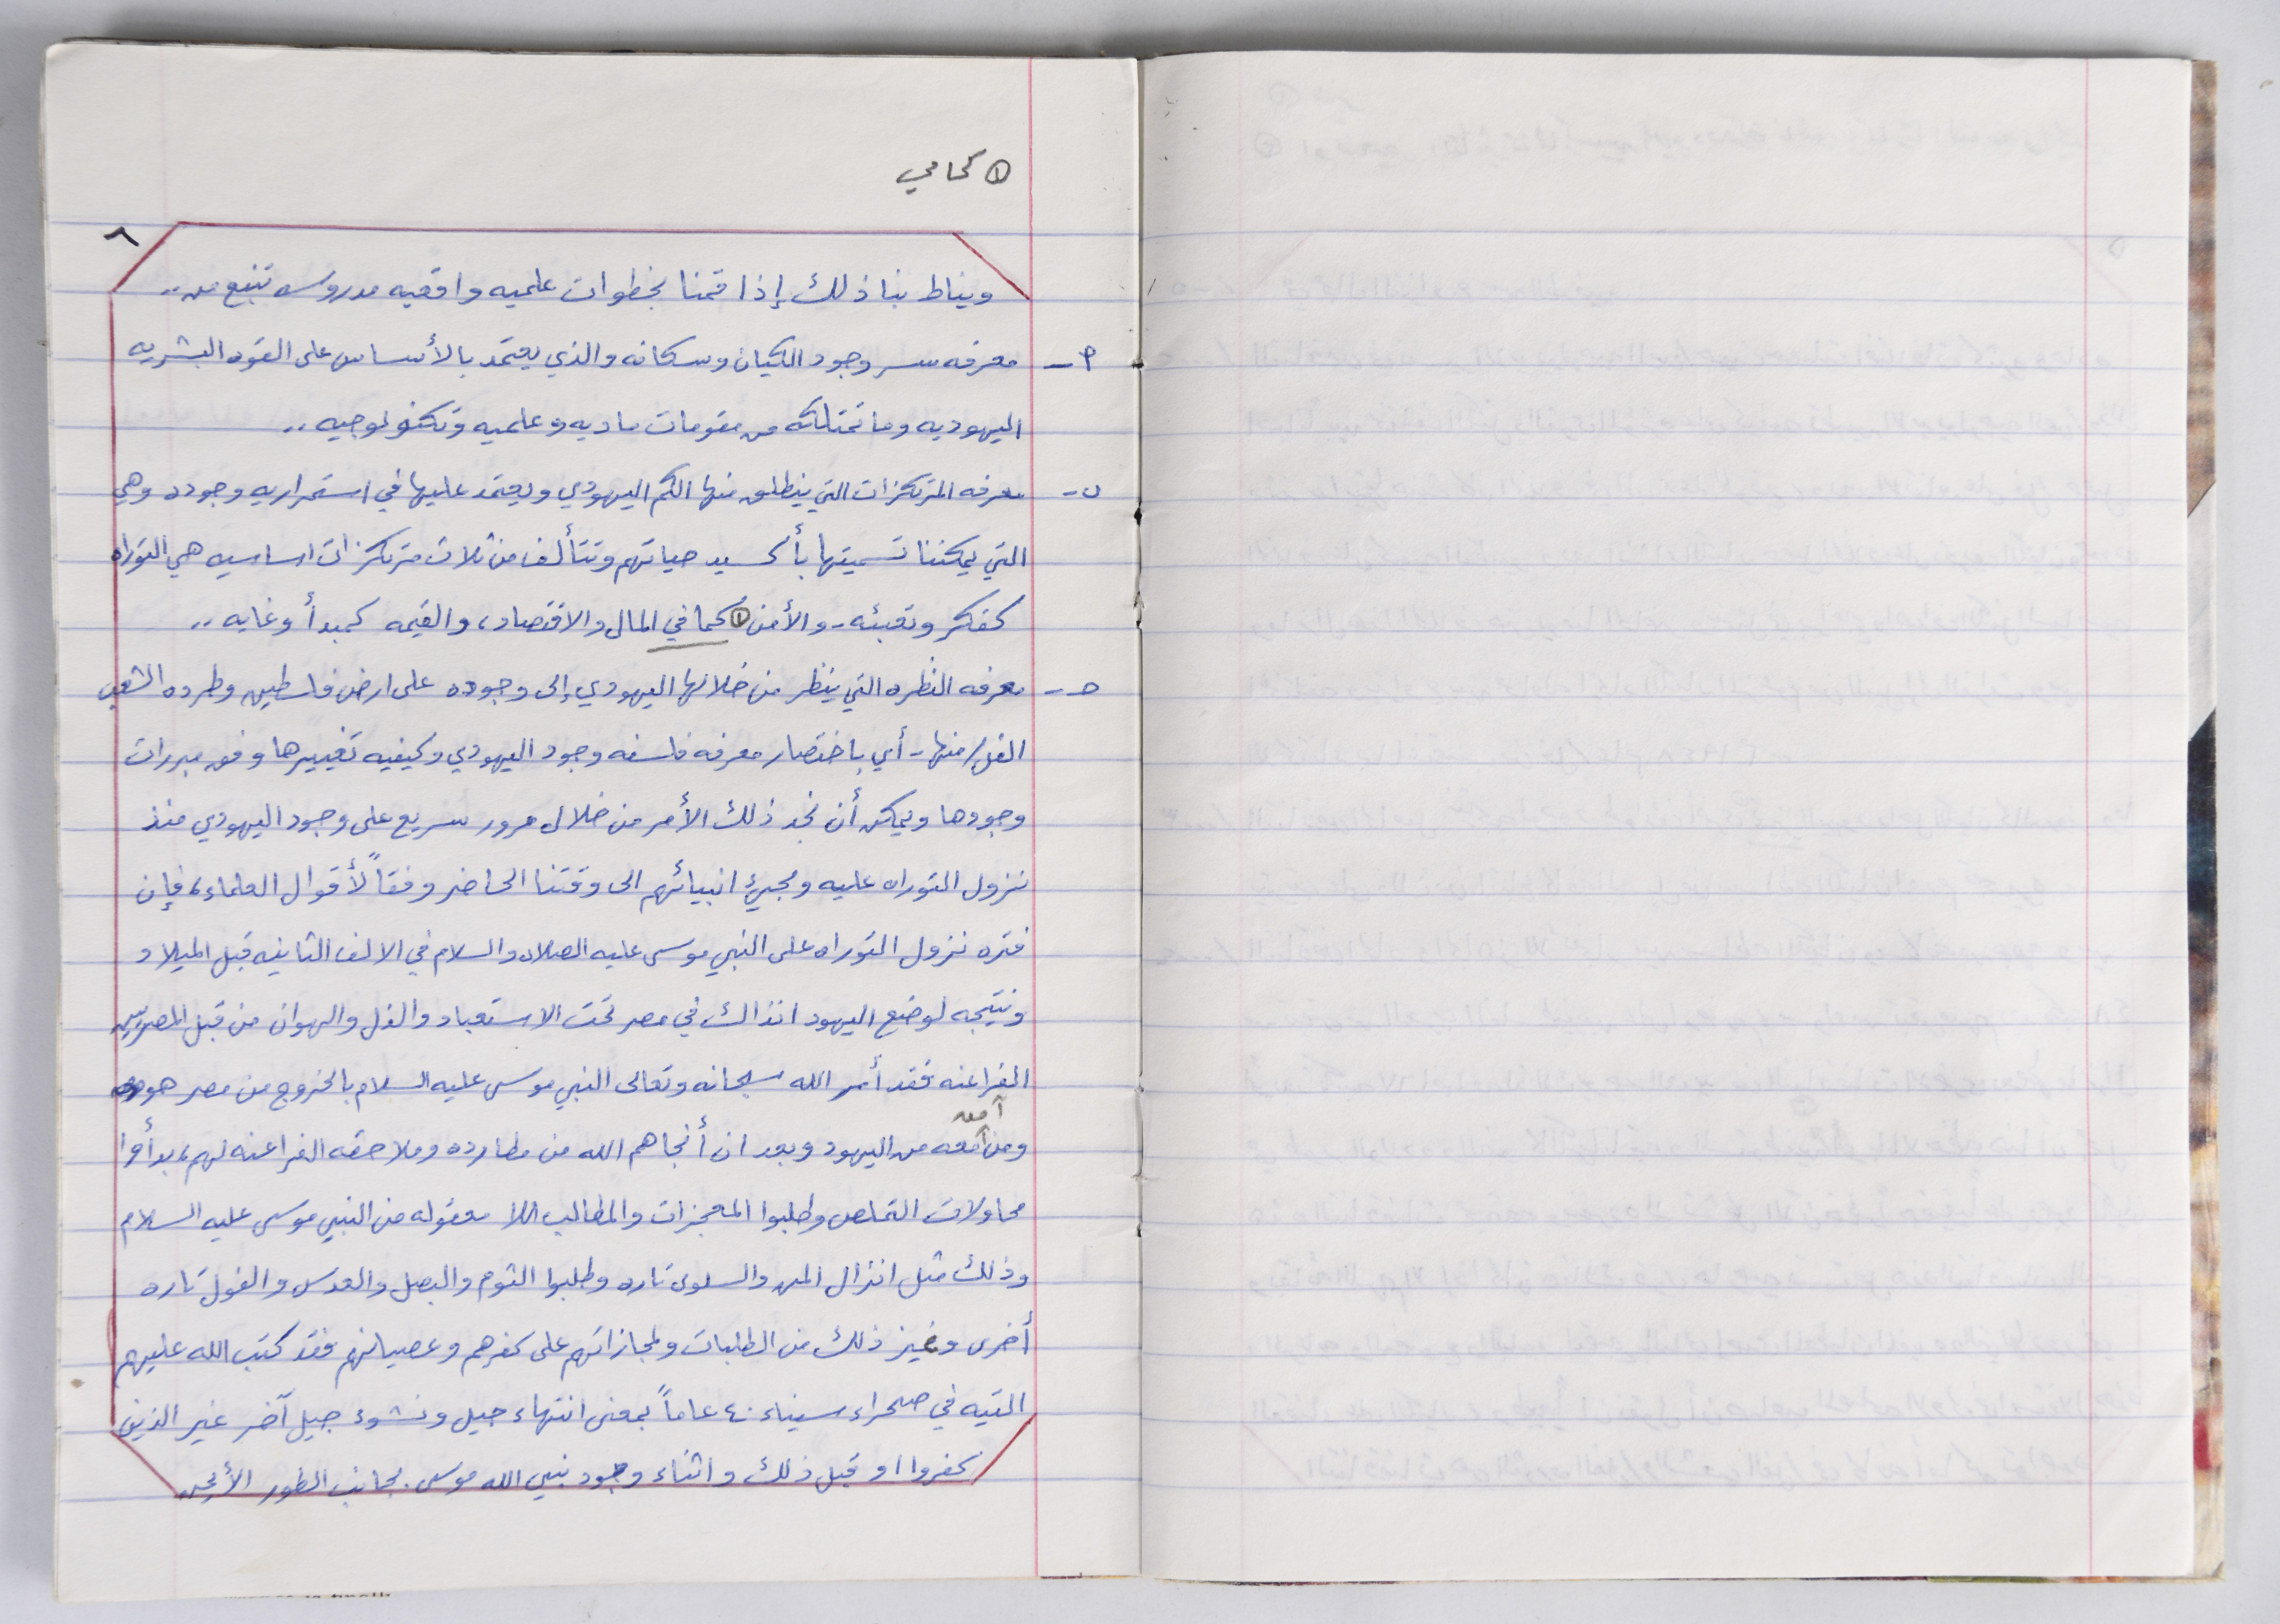 ① كحامي
٦
ويناط بنا ذلك إذا قمنا بخطوات علميه واقعيه مدروسه تنبع من ..
أ - معرفه سر وجود الكيان وسكانه والذي يعتمد بالأساس على القوه البشريه
اليهوديه وما تمتلكه من مقومات ماديه وعلميه وتكنولوجيه ..
ب - معرفه المرتكزات التي ينطلق منها الكم اليهودي ويعتمد عليها في استمراريه وجوده وهي
التي يمكننا تسميتها بأكسيد حياتهم وتتألف من ثلاث مرتكزات اساسيه هي التوراه
كفكر وتعبئه - والأمن ① كحامي المال والاقتصاد، والقيمه كمبدأ وغايه ..
حـ - معرفه النظره التي ينظر من خلالها اليهودي إلى وجوده على ارض فلسطين وطرده الشعب
الفل/ منها - أي باختصار معرفه فلسفه وجود اليهودي وكيفيه تغييرها وفق مبررات
وجودها ويمكن أن نجد ذلك الأمر من خلال مرور سريع على وجود اليهودي منذ
نزول التوراه عليه ومجيئ انبيائهم الى وقتنا الحاضر وفقاً لأقوال العلماء، فإن
فتره نزول التوراه على النبي موسى عليه الصلاه والسلام في الالف الثانيه قبل الميلاد
ونتيجه لوضع اليهود انذاك في مصر تحت الاستعباد والذل والهوان من قبل المصريين
الفراعنه فقد أمر الله سبحانه وتعالى النبي موسى عليه السلام بالخروج من مصر هو
آمن
ومن معه من اليهود وبعد ان أنجاهم الله من مطارده وملاحقه الفراعنه لهم، بدأوا
محاولات التملص وطلبوا المعجزات والمطالب اللا معقوله من النبي موسى عليه السلام
وذلك مثل انزال المن والسلوى تاره وطلبوا الثوم والبصل والعدس والفول تاره
أخرى وغيز ذلك من الطلبات ولمجازاتهم على كفرهم وعصيانهم فقد كتب الله عليهم
التيه في صحراء سيناء ٤٠ عاماً بمعنى انتهاء جيل ونشوء جيل آخر غير الذين
كفروا او قبل ذلك واثناء وجود نبي الله موسى بجانب الطور الأيمن